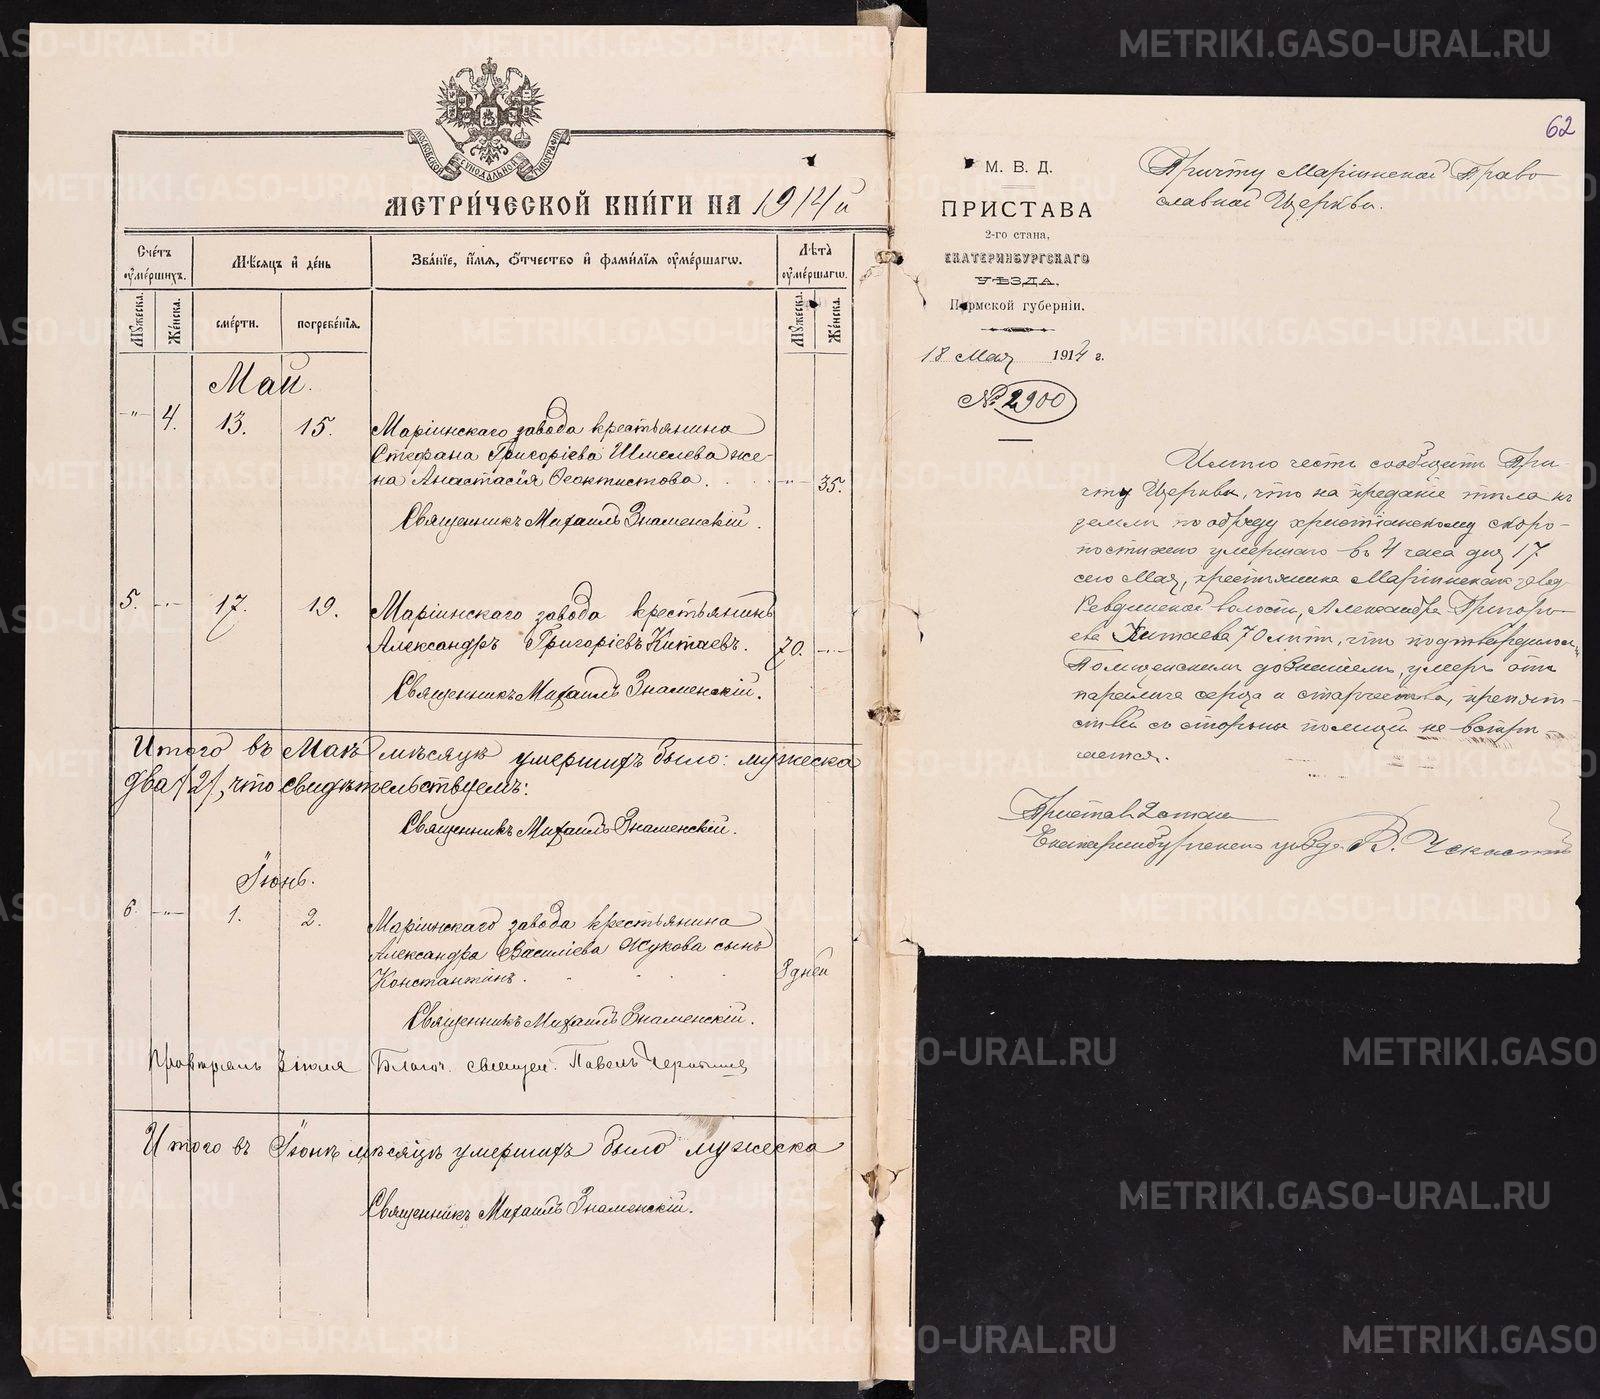 МЕТРИ́ЧЕСКОЙ КНИ́ГИ НА 1914й
Сче́тъ ᲂу҆ме́ршихъ.
Мѣ́сяцъ и҆ де́нь
Зва́нїе, и҆́мя, ѻ҆́тчество и҆ фами́лїя ᲂу҆ме́ршагѡ.
Лѣ́та ᲂу҆ме́ршагѡ.
Мꙋ́жеска. Же́нска. сме́рти. погребе́нїя. Мꙋ́жеска. Же́нска.
Май.
-"- 4. 13. 15. Маріинскаго завода крестьянина
Стефана Григоріева Шмелева же-
на Анастасія Феоктистова. -"- 35.
Священникъ Михаилъ Знаменскій.
5. -"- 17. 19. Маріинскаго завода крестьянинъ
Александръ Григоріевъ Китаевъ. 70. -"-
Священникъ Михаилъ Знаменскій.
Итого въ Маѣ мѣсяцѣ умершихъ было: мужеска
два /2/, что свидѣтельствуемъ:
Священникъ Михаилъ Знаменскій.
Іюнь.
6. -"- 1. 2. Маріинскаго завода крестьянина
Александра Василіева Жукова сынъ
Константинъ. 8 дней
Священникъ Михаилъ Знаменскій.
Благоч. священ. Павелъ
Итого въ Іюнѣ мѣсяцѣ умершихъ было мужеска
Священникъ Михаилъ Знаменскій.
62
М. В. Д.
ПРИСТАВА
2-го стана,
ЕКАТЕРИНБУРГСКАГО
УѢЗДА.
Пермской губерніи.
18 Мая 1914 г.
№ 2900
Причту Маріинской Право
славной Церкви.
Имѣю честь сообщить При-
чту Церкви, что на преданіе тѣла къ
землѣ по обряду христіанскому скоро-
постижно умершаго въ 4 часа дня 17
сего Мая, крестьянина Маріинскаго завод
Ревдинской волости, Александра Григорь-
ева Китаева 70 лѣтъ, что подтвердилось
Полицейскимъ дознаніемъ, умеръ отъ
паралича сердца и старчества, препят-
ствій со стороны полиціи не встрѣ
чается.
Приставъ 2 стана
Екатеринбургскаго уѣзда В.
METRIKI.GASO-URAL.RU